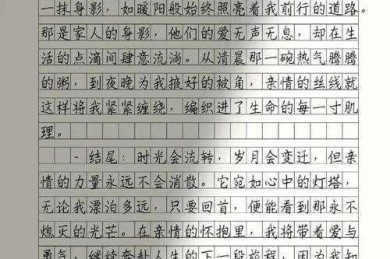 一抹身影，如暖阳般始终照亮着我前行的道路。
那是家人的身影，他们的爱无声无息，却在生
活的点滴间肆意流淌。从清晨那一碗热气腾腾
的粥，到夜晚为我掖好的被角，亲情的丝线就
这样将我紧紧缠绕，编织进了生命的每一寸肌
理。
- 结尾：时光会流转，岁月会变迁，但亲
情的力量永远不会消散。它宛如心中的灯塔，
无论我漂泊多远，只要回首，便能看到那永不
熄灭的光芒。在亲情的怀抱里，我将带着爱与
勇气，继续奔赴人生的下一段旅程，因为我知